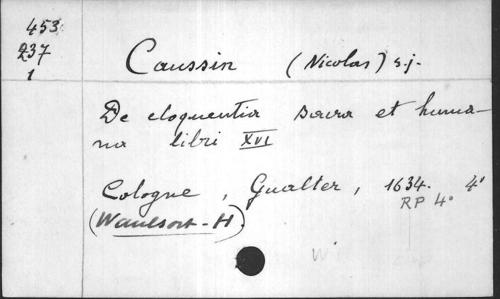 453
237
1
Caussin (Nicolas) s.j.
De eloquentia sacra et huma-
na libri XVI
Cologne, Gualter, 1634. 4°
RP 4°
(Waulsort-H).